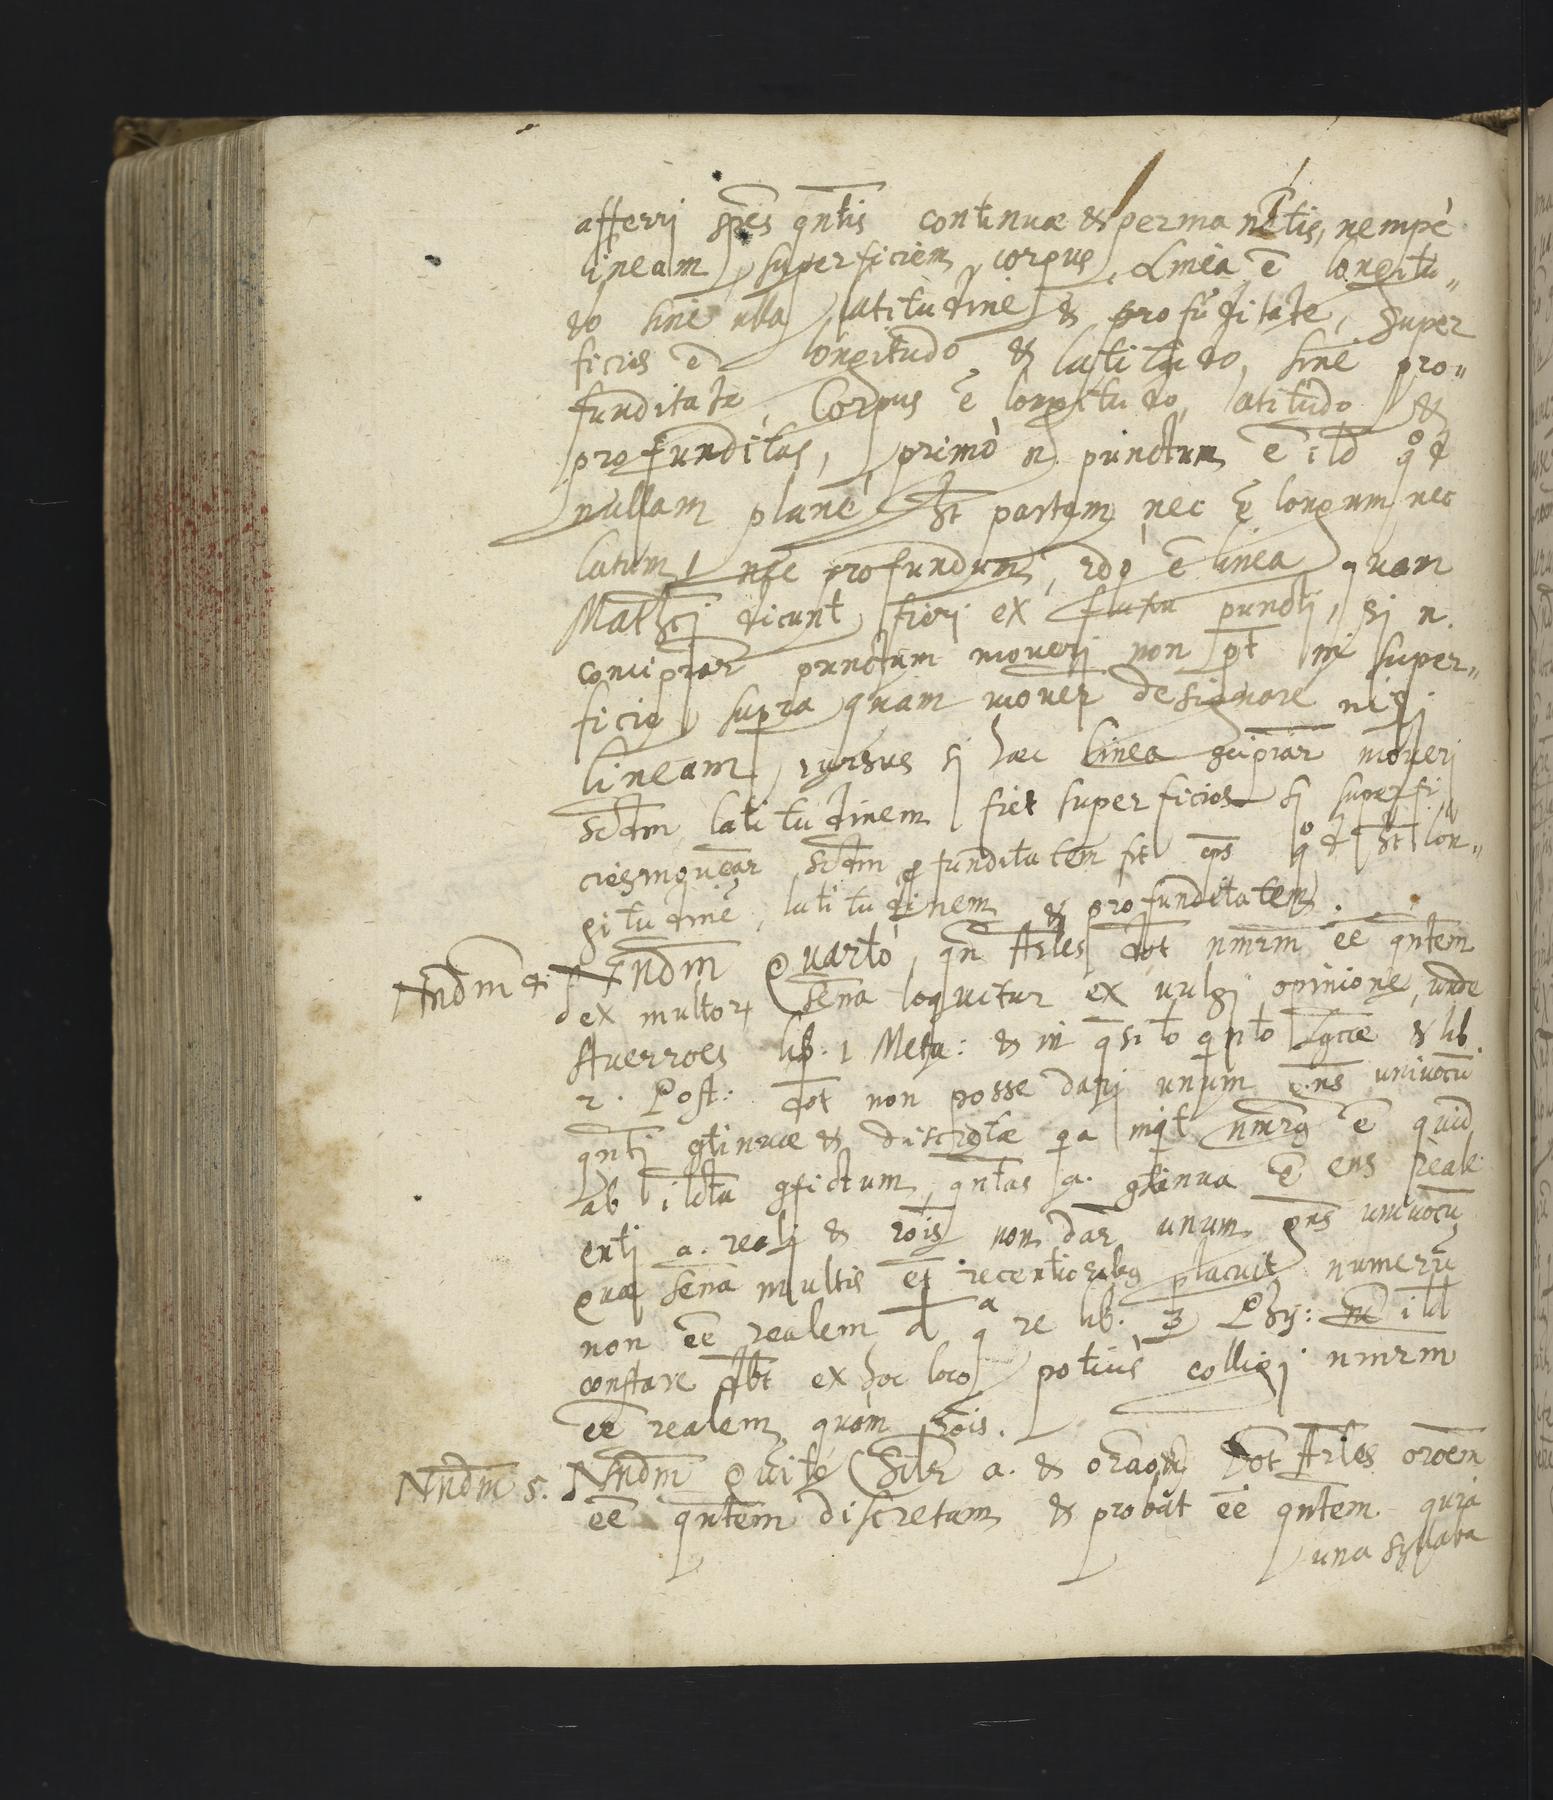 afferri spēs qntis continuæ & permanētis, nempè
lineam, superficiem, corpus, Linea ē longitu„
do sine ulla latitudine & profūditate, Super
ficies ē longitudo & latitudo, sine pro„
funditate, Corpus ē longitudo, latitudo &
profunditas, primò n. punctum ē ild qod
nullam planè ht partem, nec ē longum nec
latum, nec profundum, 2do ē linea quam
Mathci dicunt fieri ex fluxu puncti, si n.
concipiar punctum moveri non pt in super„
ficie supra quam mover designare nisi
lineam, rursus si hæc linea gcipiar moveri
scdm latitudinem fiet superficies si superfi„
cies movear scdm pfunditatem fit cps qod ht lon„
gitudinē, latitudinem & profunditatem.
Nndm 4. Nndm Quartò, qn Arles dot nmrm ee qntem
ex multor sena loquitur ex vulgi opinione, unde
Averroes lib. 1 Meta: & in qsito qnto Lgcæ & lib.
2. Post: dot non posse dari unum gns univocū
qnti gtinuæ & discretæ qa inqt nmrg ē quid
ab gfictum, qntas a. gtinua ē ens reale
enti a. reali & rois non dar unum gns univocū
Quæ sena multis et recentioribg placuit numerū
non ee realem d qa re lib. 3 Phy: ild
constare dbt ex hoc loco potius colligi nmrm
ee realem quàm rois.
Nndm 5. Nndm Quītò Silr a. & dot Arles oroem
ee qntem discretam & probat ee qntem quia
una syllaba